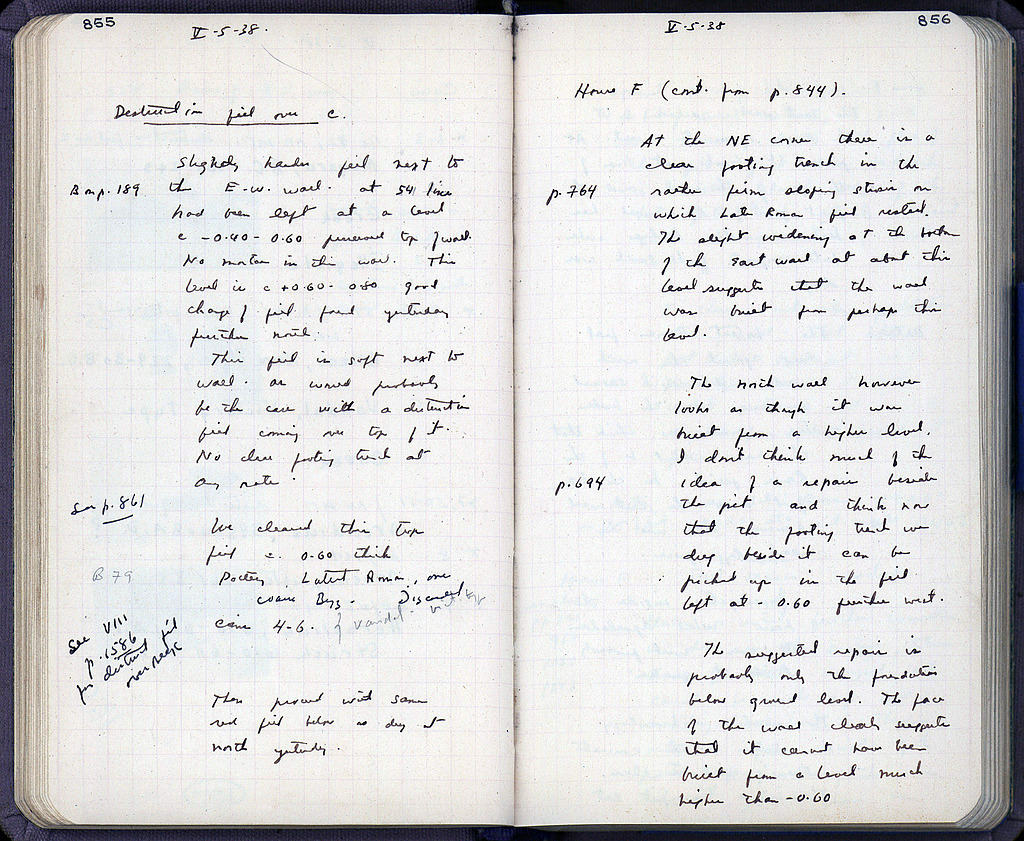 855
V-5-38.
Destruction fill over c.
Slightly harder fill next to
B on p. 189 the E-W. wall. at 54 line
had been left at a level
c -0.40-0.60 preserved top of wall.
No mortar in this wall. This
level is c +0.60-0.80 good
change of fill found yesterday
further north.
This fill is soft next to
wall. as would probably
be the case with a destruction
fill coming over top of it.
No clear footing trench at
any rate.
See p. 861
We cleared this top
fill c. 0.60 thick
B 79
Pottery - Latest Roman, one
coarse Byz. - Discarded
coins 4-6. Vandal
See VIII
p. 1586
for destruct fill
over
Then proceed with same
red fill below as dug at
north yesterday.
856
V-5-38
House F (cont. from p. 844).
At the NE corner there is a
clear footing trench in the
p. 764 rather firm sloping stratum on
which Late Roman fill rested.
The slight widening at the bottom
of the East wall at about this
level suggests that the wall
was built from perhaps this
level.
The north wall however
looks as though it was
built from a higher level.
I don't think much of the
p. 694 idea of a repair beside
the pit and think now
that the footing trench we
dug beside it can be
picked up in the fill
left at -0.60 further west.
The suggested repair is
probably only the foundation
below ground level. The face
of the wall clearly suggests
that it cannot have been
built from a level much
higher than -0.60